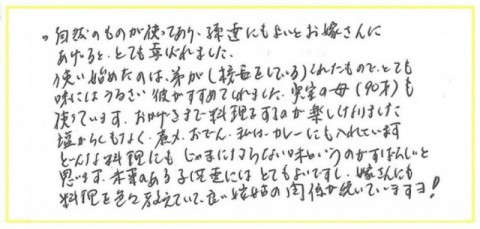 。自然のものが使ってあり、孫達にもよいとお嫁さんに
あげると、とても喜ばれました。
使い始めたのは、弟が(校長をしている)くれたもので、とても
味にはうるさい彼がすすめてくれました。実家の母(90才)も
使っています。おかげさまで料理をするのが楽しくなりました
塩からくもなく、煮〆、おでん、私は、カレーにも入れています
どんな料理にもじゃまにならない味というのがすばらしいと
思います。未来のある子供達にはとてもよいですし、嫁さんにも
料理を色々教えていて、良い嫁姑の関係が続いていますヨ!